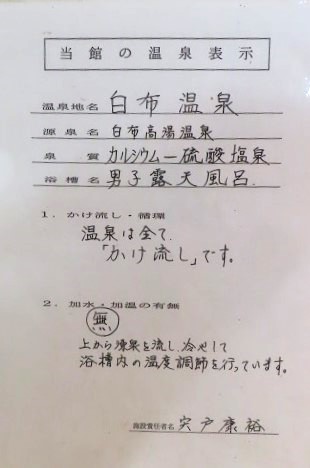 当館の温泉表示
温泉地名 白布温泉
源泉名 白布高湯温泉
泉質 カルシウムー硫酸塩泉
浴槽名 男子露天風呂.
1．かけ流し・循環
温泉は全て、
「かけ流し」です。
2．加水・加温の有無
無
上から源泉を流し、冷やして
浴槽内の温度調節を行っています。
施設責任者名 宍戸康裕